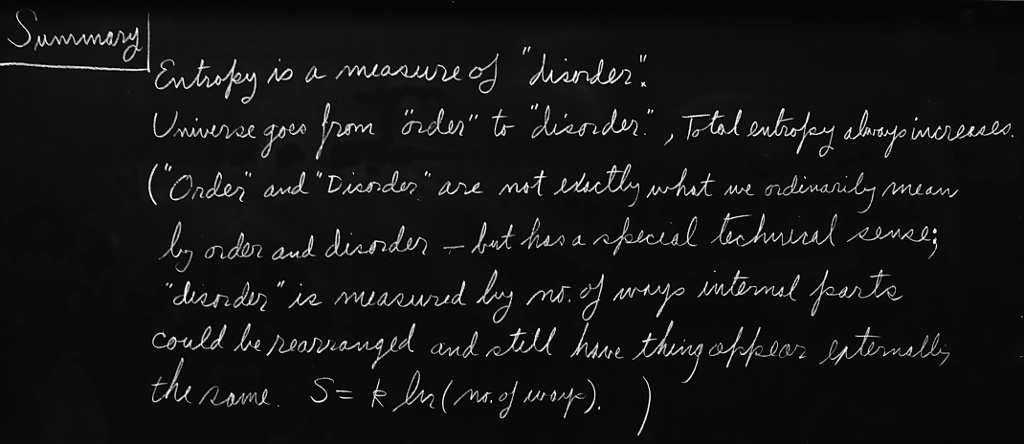 Summary
Entropy is a measure of "disorder".
Universe goes from "order" to "disorder.", Total entropy always increases.
("Order" and "Disorder" are not exactly what we ordinarily mean
by order and disorder – but has a special technical sense;
"disorder" is measured by no. of ways internal parts
could be rearranged and still have thing appear externally
the same. S = k ln (no. of ways). )